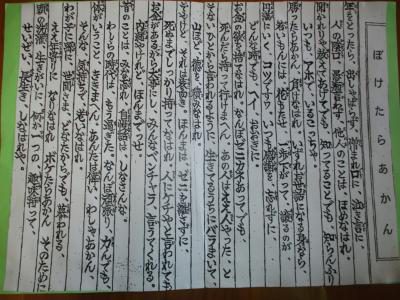 ぼけたらあかん
年をとったら、出しゃばらず、憎まれ口に、泣き言に、
人の陰口、愚痴言わず、他人のことは、ほめなはれ
聞かれりゃ教えてあげてでも、知ってることでも、知らんふり
いつでもアホで、いるこっちゃ。
勝ったらあかん、負けなはれ、いずれお世話になる身なら
若いもんには、花もたせ、一歩下がって、譲るのが
円満にいく、コツですわ、いつも感謝を、忘れずに、
どんな時でも、ヘイおおきに
お金の欲を、捨てなはれ、なんぼゼニカネあってでも
死んだら持って行けまへん、あの人はええ人やった、と
そないに人から言われるように、生きてるうちにバラまいて、
山ほど、徳を、積みなはれ。
そやけど、それは表向き、ほんまは、ゼニを離さずに、
死ぬまでしっかり、持ってなはれ、人にケチやと言われても
お金があるから大事にし、みんなベンチャラ、言うてくれる、
内緒やけど、ほんまでっせ。
昔のことは、みな忘れ、自慢話は、しなさんな、
わしらの時代は、もう過ぎた、なんぼ頑張り、力んでも、
体がいうこと、ききまへん、あんたは偉い、わしゃあかん
そんな、気持ちで、おりなはれ
わが子に孫に、世間さま、どなたからでも、慕われる、
ええ年寄りに、なりなはれ、ボケたらあかん、そのために
頭の洗濯、生きがいに、何か一つの、趣味持って、
せいぜい、長生き、しなはれや。